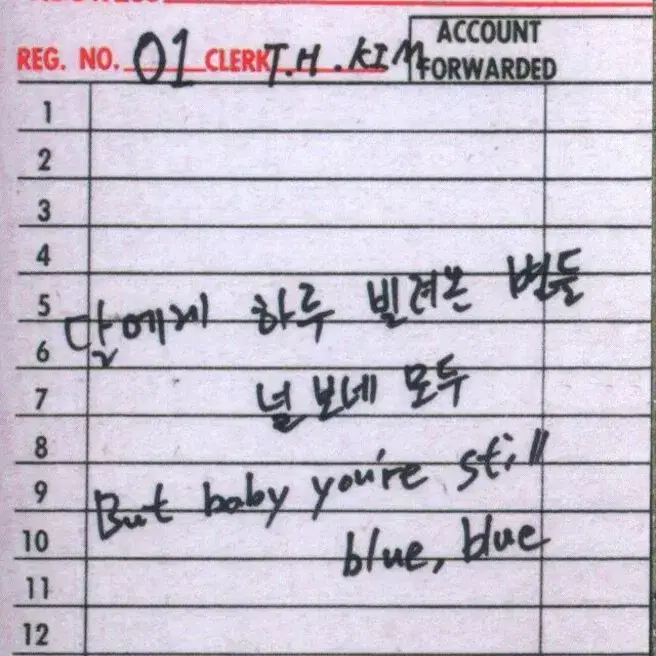 REG. NO. 01 CLERK T.H. KIM
ACCOUNT
FORWARDED
1
2
3
4
5
6
7
8
9
10
11
12
달에게 하루 빌려온 별들
널 보네 모두
But baby you're still
blue, blue